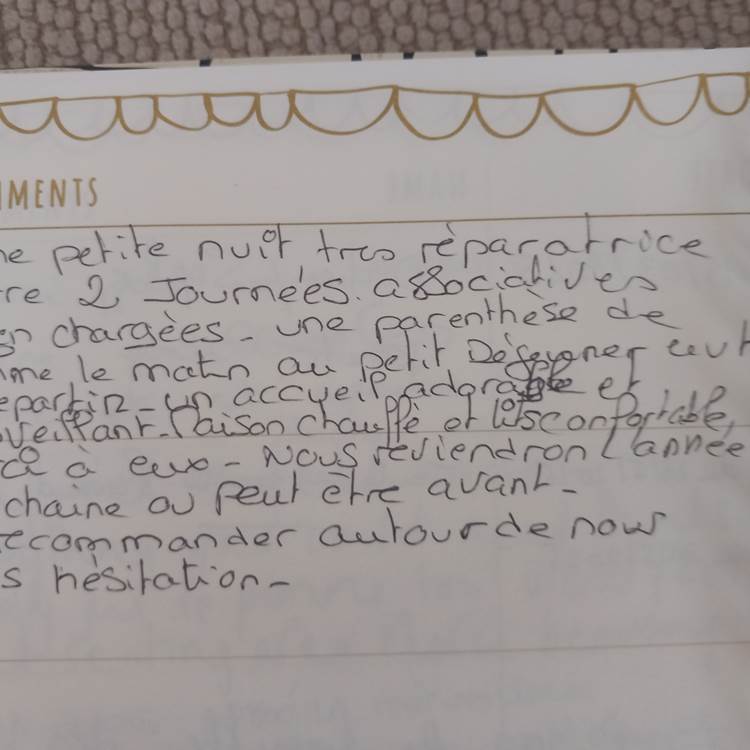 MENTS
ne petite nuit tres réparatrice
re 2 Journées. associatives
en chargées - une parenthèse de
me le matin au petit Déjeuner
epartir - un accueil adorable et
veillant. Maison chauffé et lits confortable,
à eux - Nous reviendron l'année
chaine ou peut être avant -
ecommander autour de nous
s hésitation -